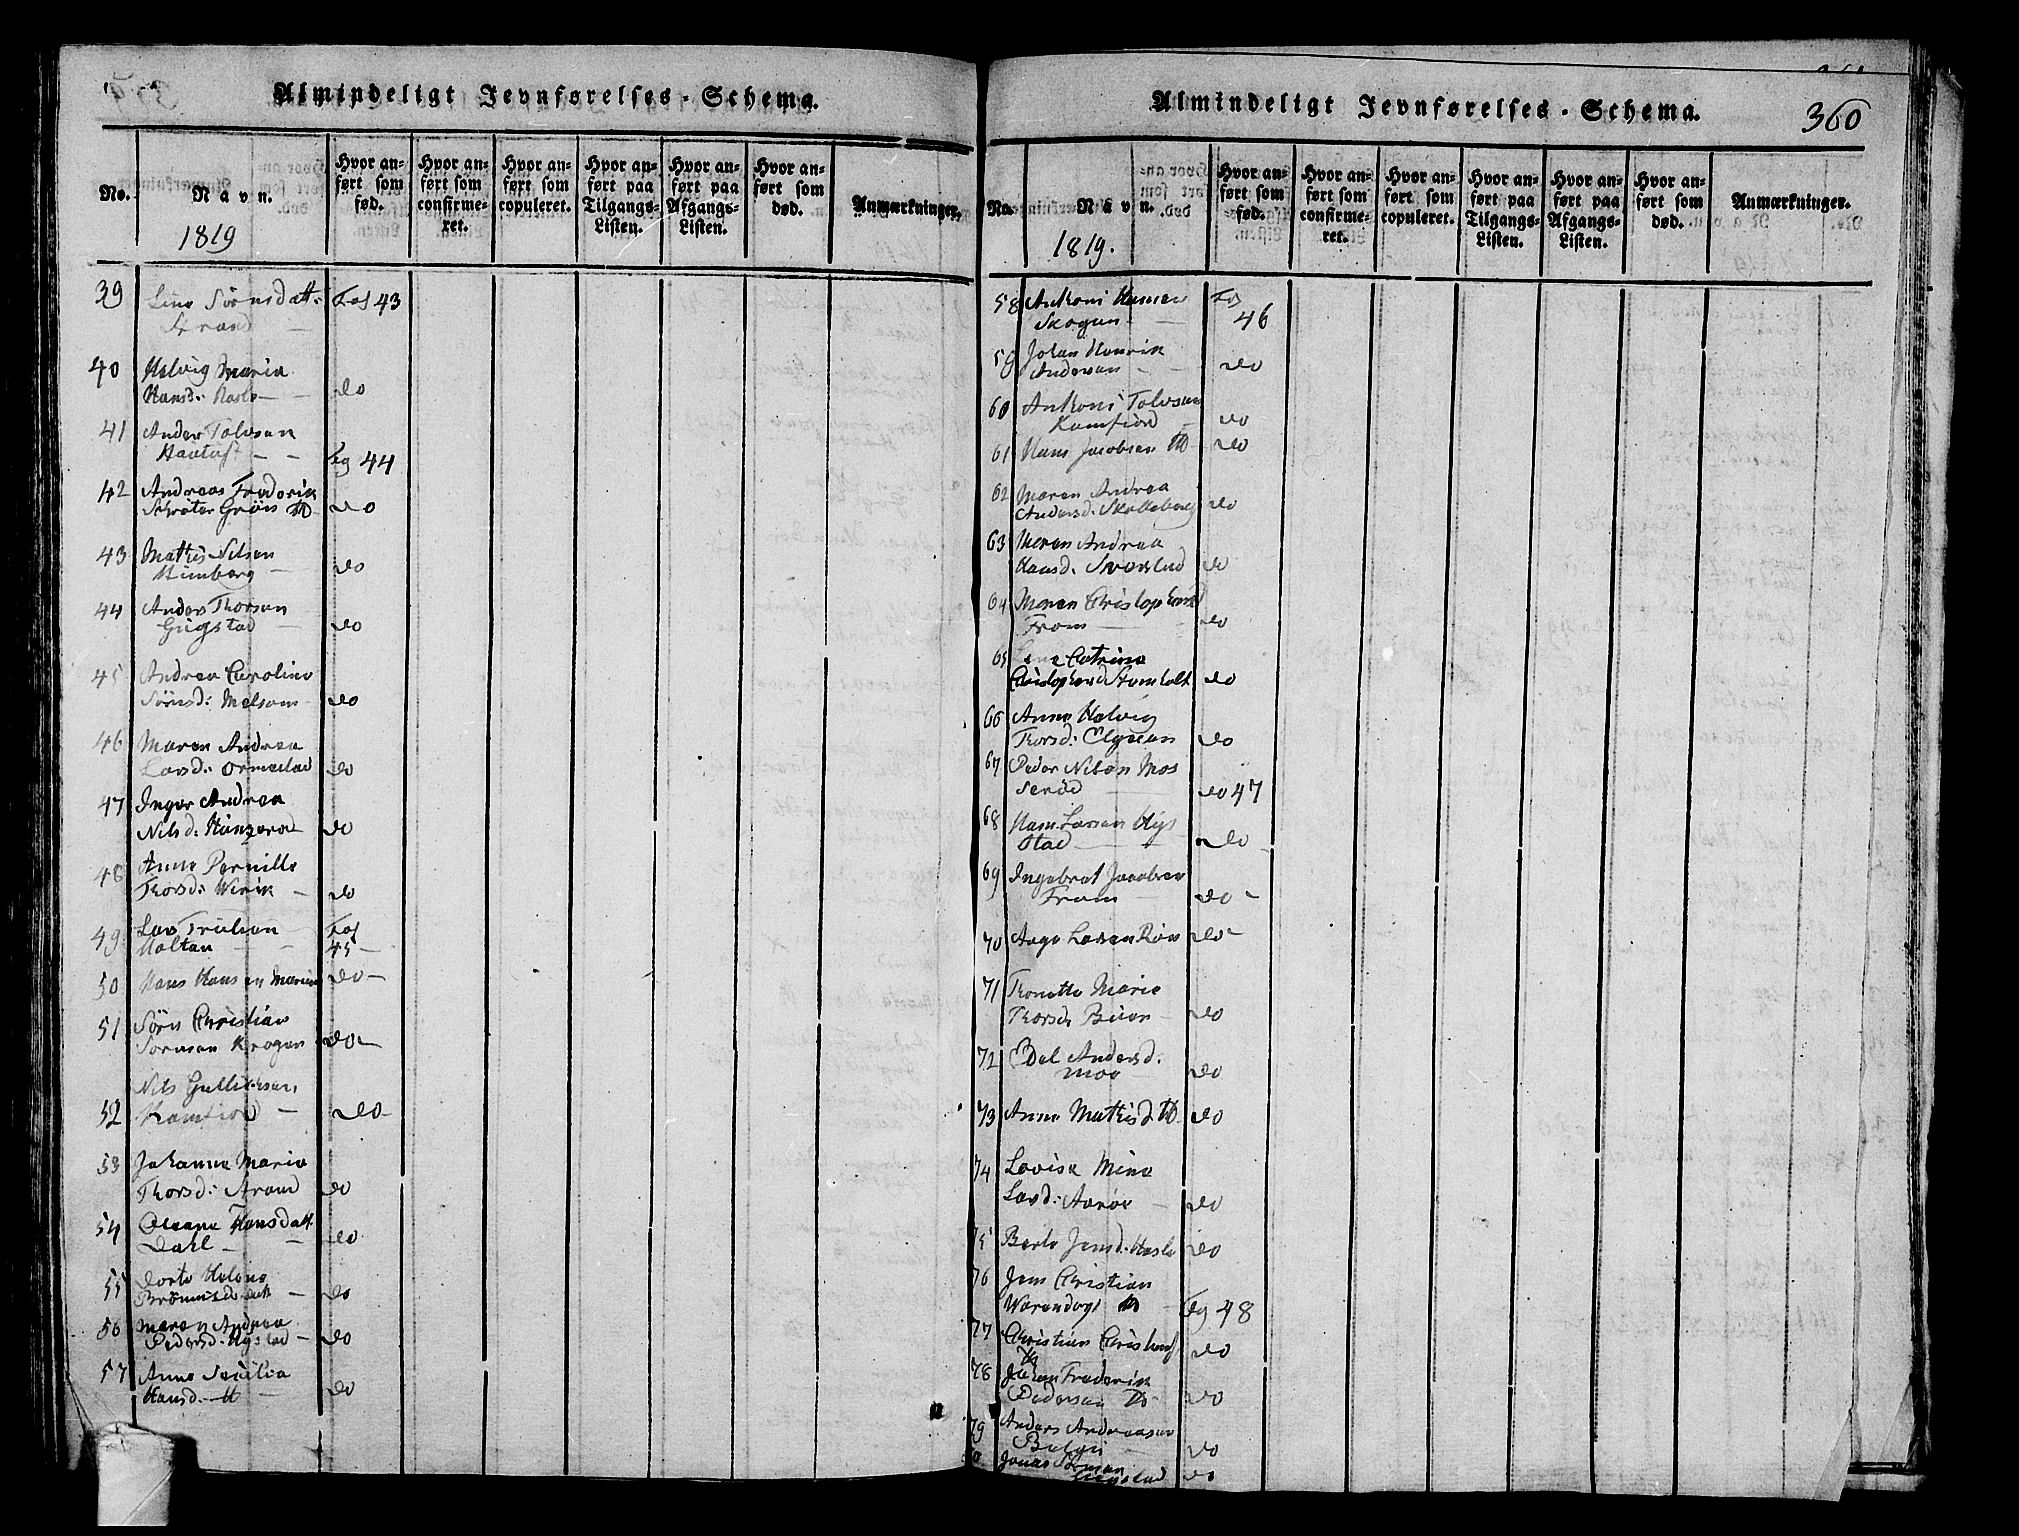 Almindeligt Jevnførelses-Schema.
No.
Navn.
Hvor anført som fød.
Hvor anført som confirmeret.
Hvor anført som copuleret.
Hvor anført paa Tilgangs-Listen.
Hvor anført paa Afgangs-Listen.
Hvor anført som død.
Anmærkninger.
1819
39 Lina Sörnsdatt: Fol 43
Strand
40 Helvig Maria
Hansd: Hasle do
41 Anders Tolvsen
Fg 44
42 Andreas Frederik
Schrøter Grøn do
43 Mathis Nilsen
Himberg do
44 Anders Thorsen
Gugstad do
45 Andrea Caroline
Sörnsd: Melsom do
46 Maren Andrea
Larsd: Ormestad do
47 Inger Andrea
Nilsd: do
48 Anne Pernille
Thorsd: Virik do
49 Lars Trulsen Fol
45
50 Hans Hansen do
51 Sörn Christian
Sörnsen Krogen do
Nils Gulliksen
52 Kamfiord do
53 Johanna Maria
Thorsd: Strand do
54 Oleana Hansdatt.
Dahl do
55 Dorte Helene
do
56 Maren Andrea
Pedersd: Hystad do
57 Anne Sicilia
Hansd: do
Almindeligt Jevnførelses-Schema. 360
No.
Navn.
Hvor anført som fød.
Hvor anført som confirmeret.
Hvor anført som copuleret.
Hvor anført paa Tilgangs-Listen.
Hvor anført paa Afgangs-Listen.
Hvor anført som død.
Anmærkninger.
1819.
58 Anthoni Hansen Fog
Skogen 46
59 Johan Henrik
Andersen do
60 Anthoni Tolvsen
Kamfiord do
61 Hans Jacobsen do
62 Maren Andrea
Andersd: Skolleborg do
63 Maren Andrea
Hansd. do
64 Maren
Fram do
65 Catrina
do
66 Anne Helvig
Thorsd: do
67 Peder Nilsen Mos
serød do 47
68 Hans Larsen Hys
stad do
69 Ingebret Jacobsen
Fram do
70 Aage Larsen do
71 Thonette Marie
Thorsd: do
72 Edel Andersd:
Moe do
73 Anne Mathisd. do
74 Lovise Mine
Larsd: Aarøe do
75 Berte Jensd: Hasle do
76 Jens Christian
Fg 48
77 Christian do
78 Johan Frederik
Pedersen do
79 Anders Andreasen
do
Jonas
do